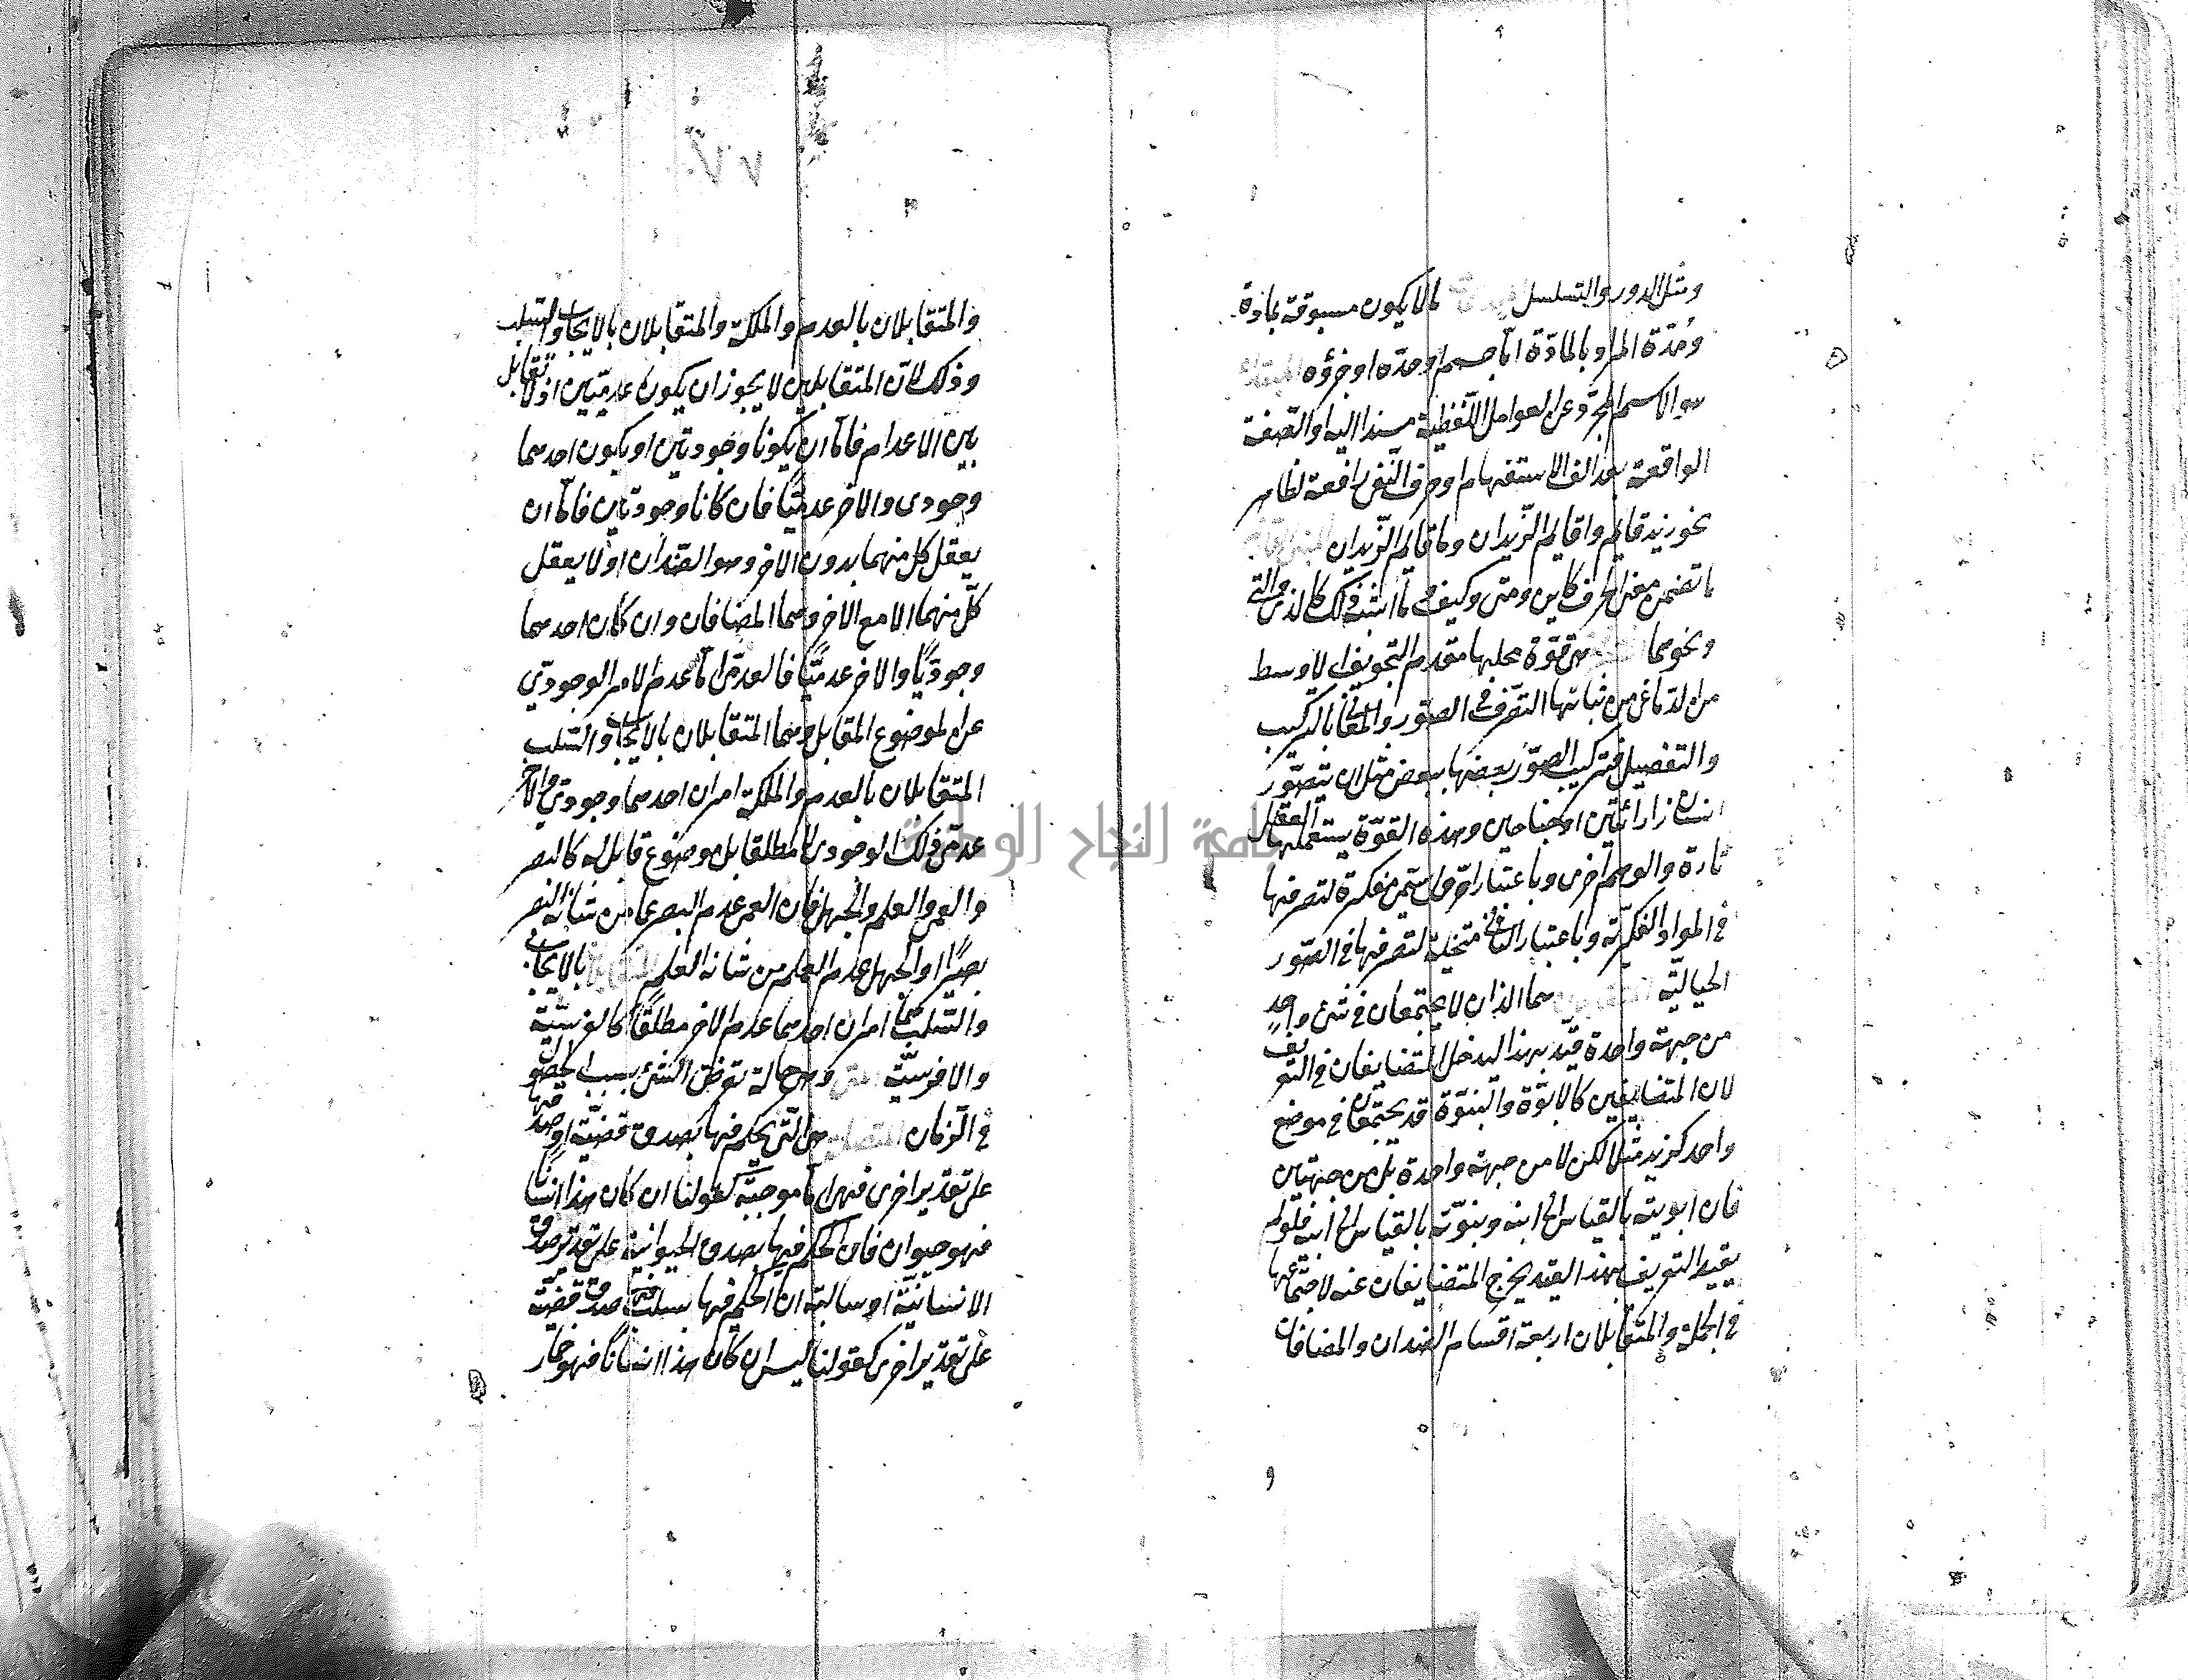 ومثل الدور والتسلسل لما لا يكون مسبوقة بمادة
ومدّة المراد بالمادّة امّا جسم او حدّه او جزؤه المبتدأ
هو الاسم المجرّد عن العوامل اللّفظية مسندا اليه او الصّفة
الواقعة بعد الف الاستفهام او حرف النّفى رافعة لظاهر
نحو زيد قايم واقايم الزّيدان وما قايم الزّيدان المبنى
ما تضمن معنى الحرف كاين ومتى وكيف او ما اشبه ذلك كالذى والتى
ونحوهما هى قوّة محلها مقدم التجويف الاوسط
من الدّماغ من شانها التصّرف فى الصّور والمعانى بالتركيب
والتفصيل فتركيب الصوّر بعضها ببعض مثل ان يتصّور
انسان ذا رأسين او جناحين وهذه القوّة يستعملها العقل
تارة والوهم اخرى وباعتبار الاوّل يسمّى مفكرة لتصرفها
فى المواد الفكريّة وباعتبار الثانى متخيلة لتصرفها فى الصّور
الخياليّة المتقابلان هما اللذان لا يجتمعان فى شئ واحد
من جهة واحدة قيّد بهذا ليدخل المتضايفان فى التعريف
لان المتضايفين كالابوّة والبنوّة قد يجتمعان فى موضع
واحد كزيد مثلا لكن لا من جهة واحدة بل من جهتين
فان ابويته بالقياس الى ابنه وبنوّته بالقياس الى ابيه فلو لم
يقيد التعريف بهذا القيد يخرج المتضايفان عنه لاجتماعها
فى الجملة والمتقابلان اربعة اقسام الضدان والمضافان
والمتقابلان بالعدم والملكة والمتقابلان بالايجاب والسّلب
وذلك لانّ المتقابلين لا يجوز ان يكون عدميّين اذ لا تقابل
بين الاعدام فامّا ان يكونا وجوديّين او يكون احدهما
وجودى والاخر عدميّا فان كانا وجوديّين فامّا ان
يعقل كل منهما بدون الاخر وهو الضدان او لا يعقل
كلّ منهما الا مع الاخر وهما المضافان وان كان احدهما
وجوديّا والاخر عدميّا فالعدمّى امّا عدم الامر الوجودّي
عن الموضوع المقابل وهما المتقابلان بالايجاب والسّلب
المتقابلان بالعدم والملكة امران احدهما وجودى والاخر
عدمّى ذلك الوجودى لا مطلقا بل موضوع قابل له كالبصر
والعمى والعلم والجهل فان العمى عدم البصر عما من شانه البصر
بصيرا والجهل عدم العلم من شانه العلم المتقابلان بالايجاب
والسّلب هما امران احدهما عدم الاخر مطلقًا كالفرسّية
والافرسيّة متى وهى حالة تعرض الشئ بسبب الحصول
فى الزّمان المتصلة هى الّتى يحكم فيها بصدق قضيّة او صدقها
على تقدير اخرى فهى امّا موجبّة كقولنا ان كان هذا انسانا
فهو حيوان فان الحكم فيها بصدق الحيوانية على تقدير صدق
الانسانيّة او سالبة ان الحكم فيها بسلب صدق قضيّة
على تقدير اخرى كقولنا ليس ان كان هذا انسانًا فهو حمار
جامعة النجاح الوطنية